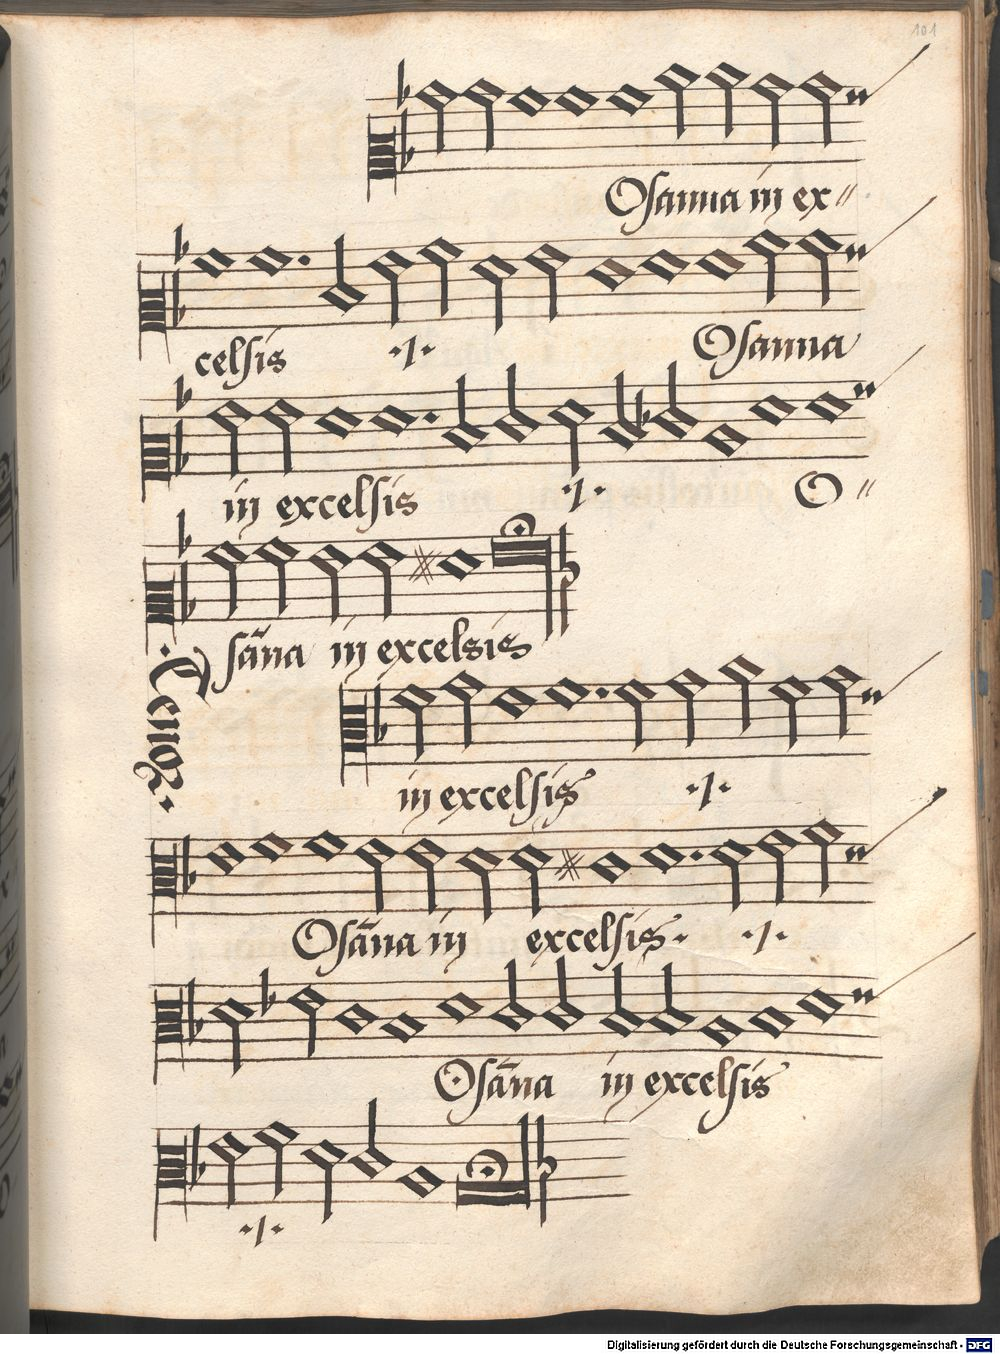 101
Osanna in ex〃
celsis ·/· Osanna
in excelsis ·/· O〃
sāna in excelsis
·Tenor·
in excelsis ·/·
Osāna in excelsis· ·/·
Osāna in excelsis
·/·
Digitalisierung gefördert durch die Deutsche Forschungsgemeinschaft - DFG